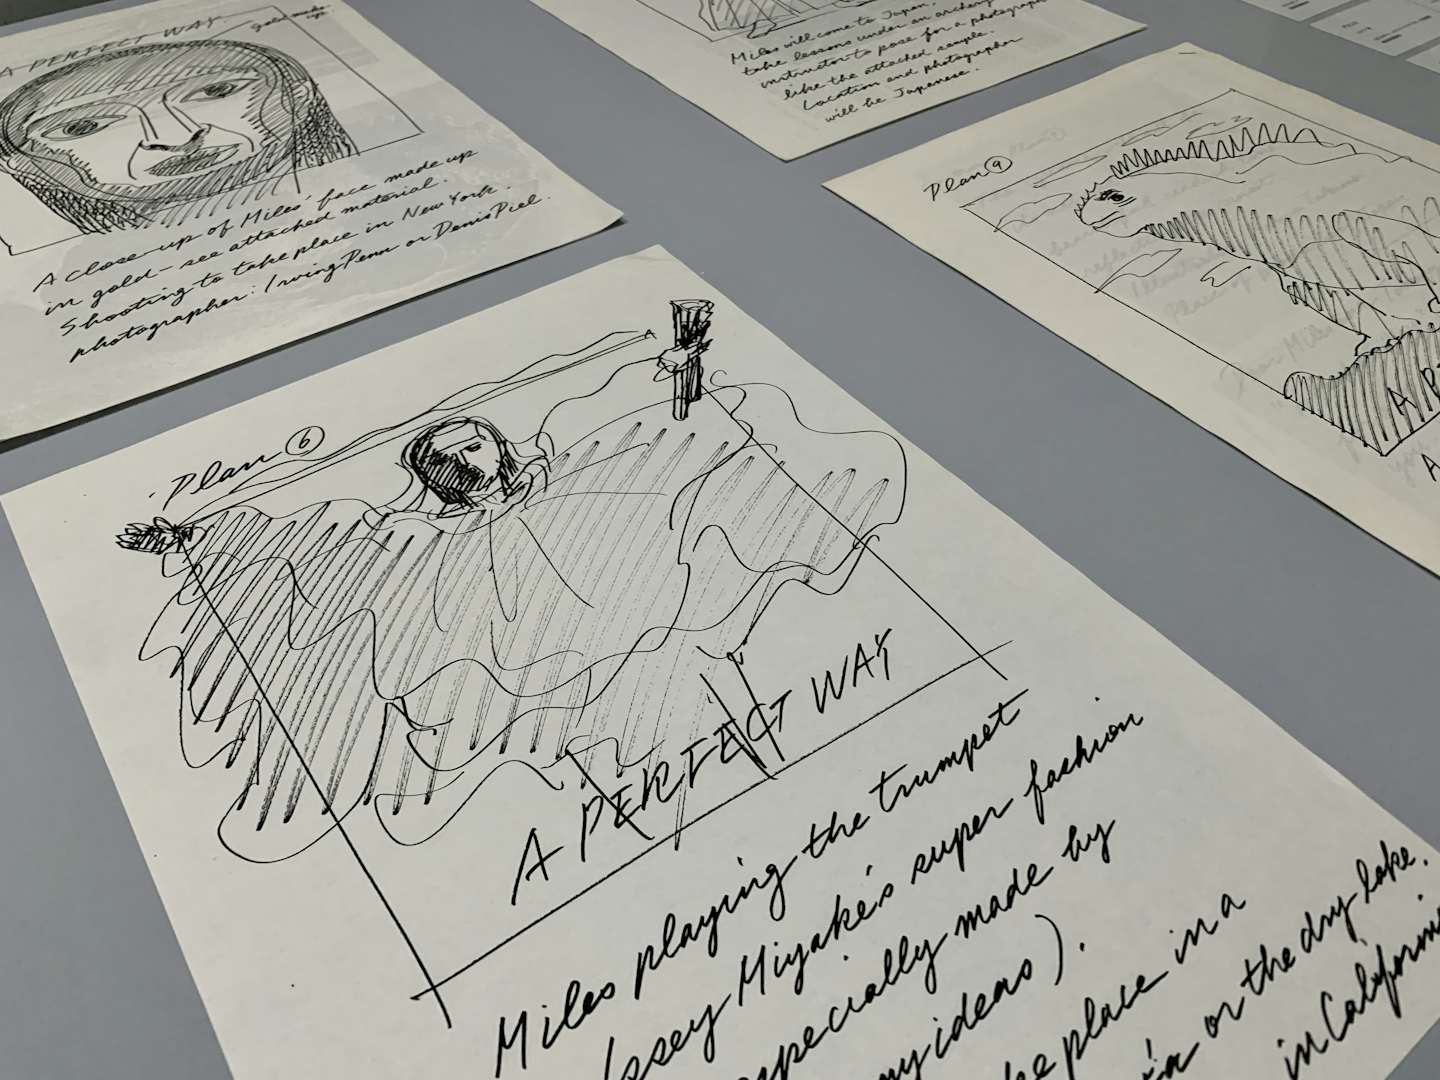 A PERFECT WAY
gold make-
up
A close-up of Miles' face made up
in gold - see attached material.
Shooting to take place in New York.
photographer: Irving Penn or Denis Piel.
Miles will come to Japan,
take lessons under an archery
instructor to pose for a photograph
like the attached sample.
Location and photographer
will be Japanese.
Plan ⑨
A
A
Plan ⑥
A PERFECT WAY
Miles playing the trumpet
Issey Miyake's super fashion
especially made by
my ideas).
place in a
or the dry lake.
in California